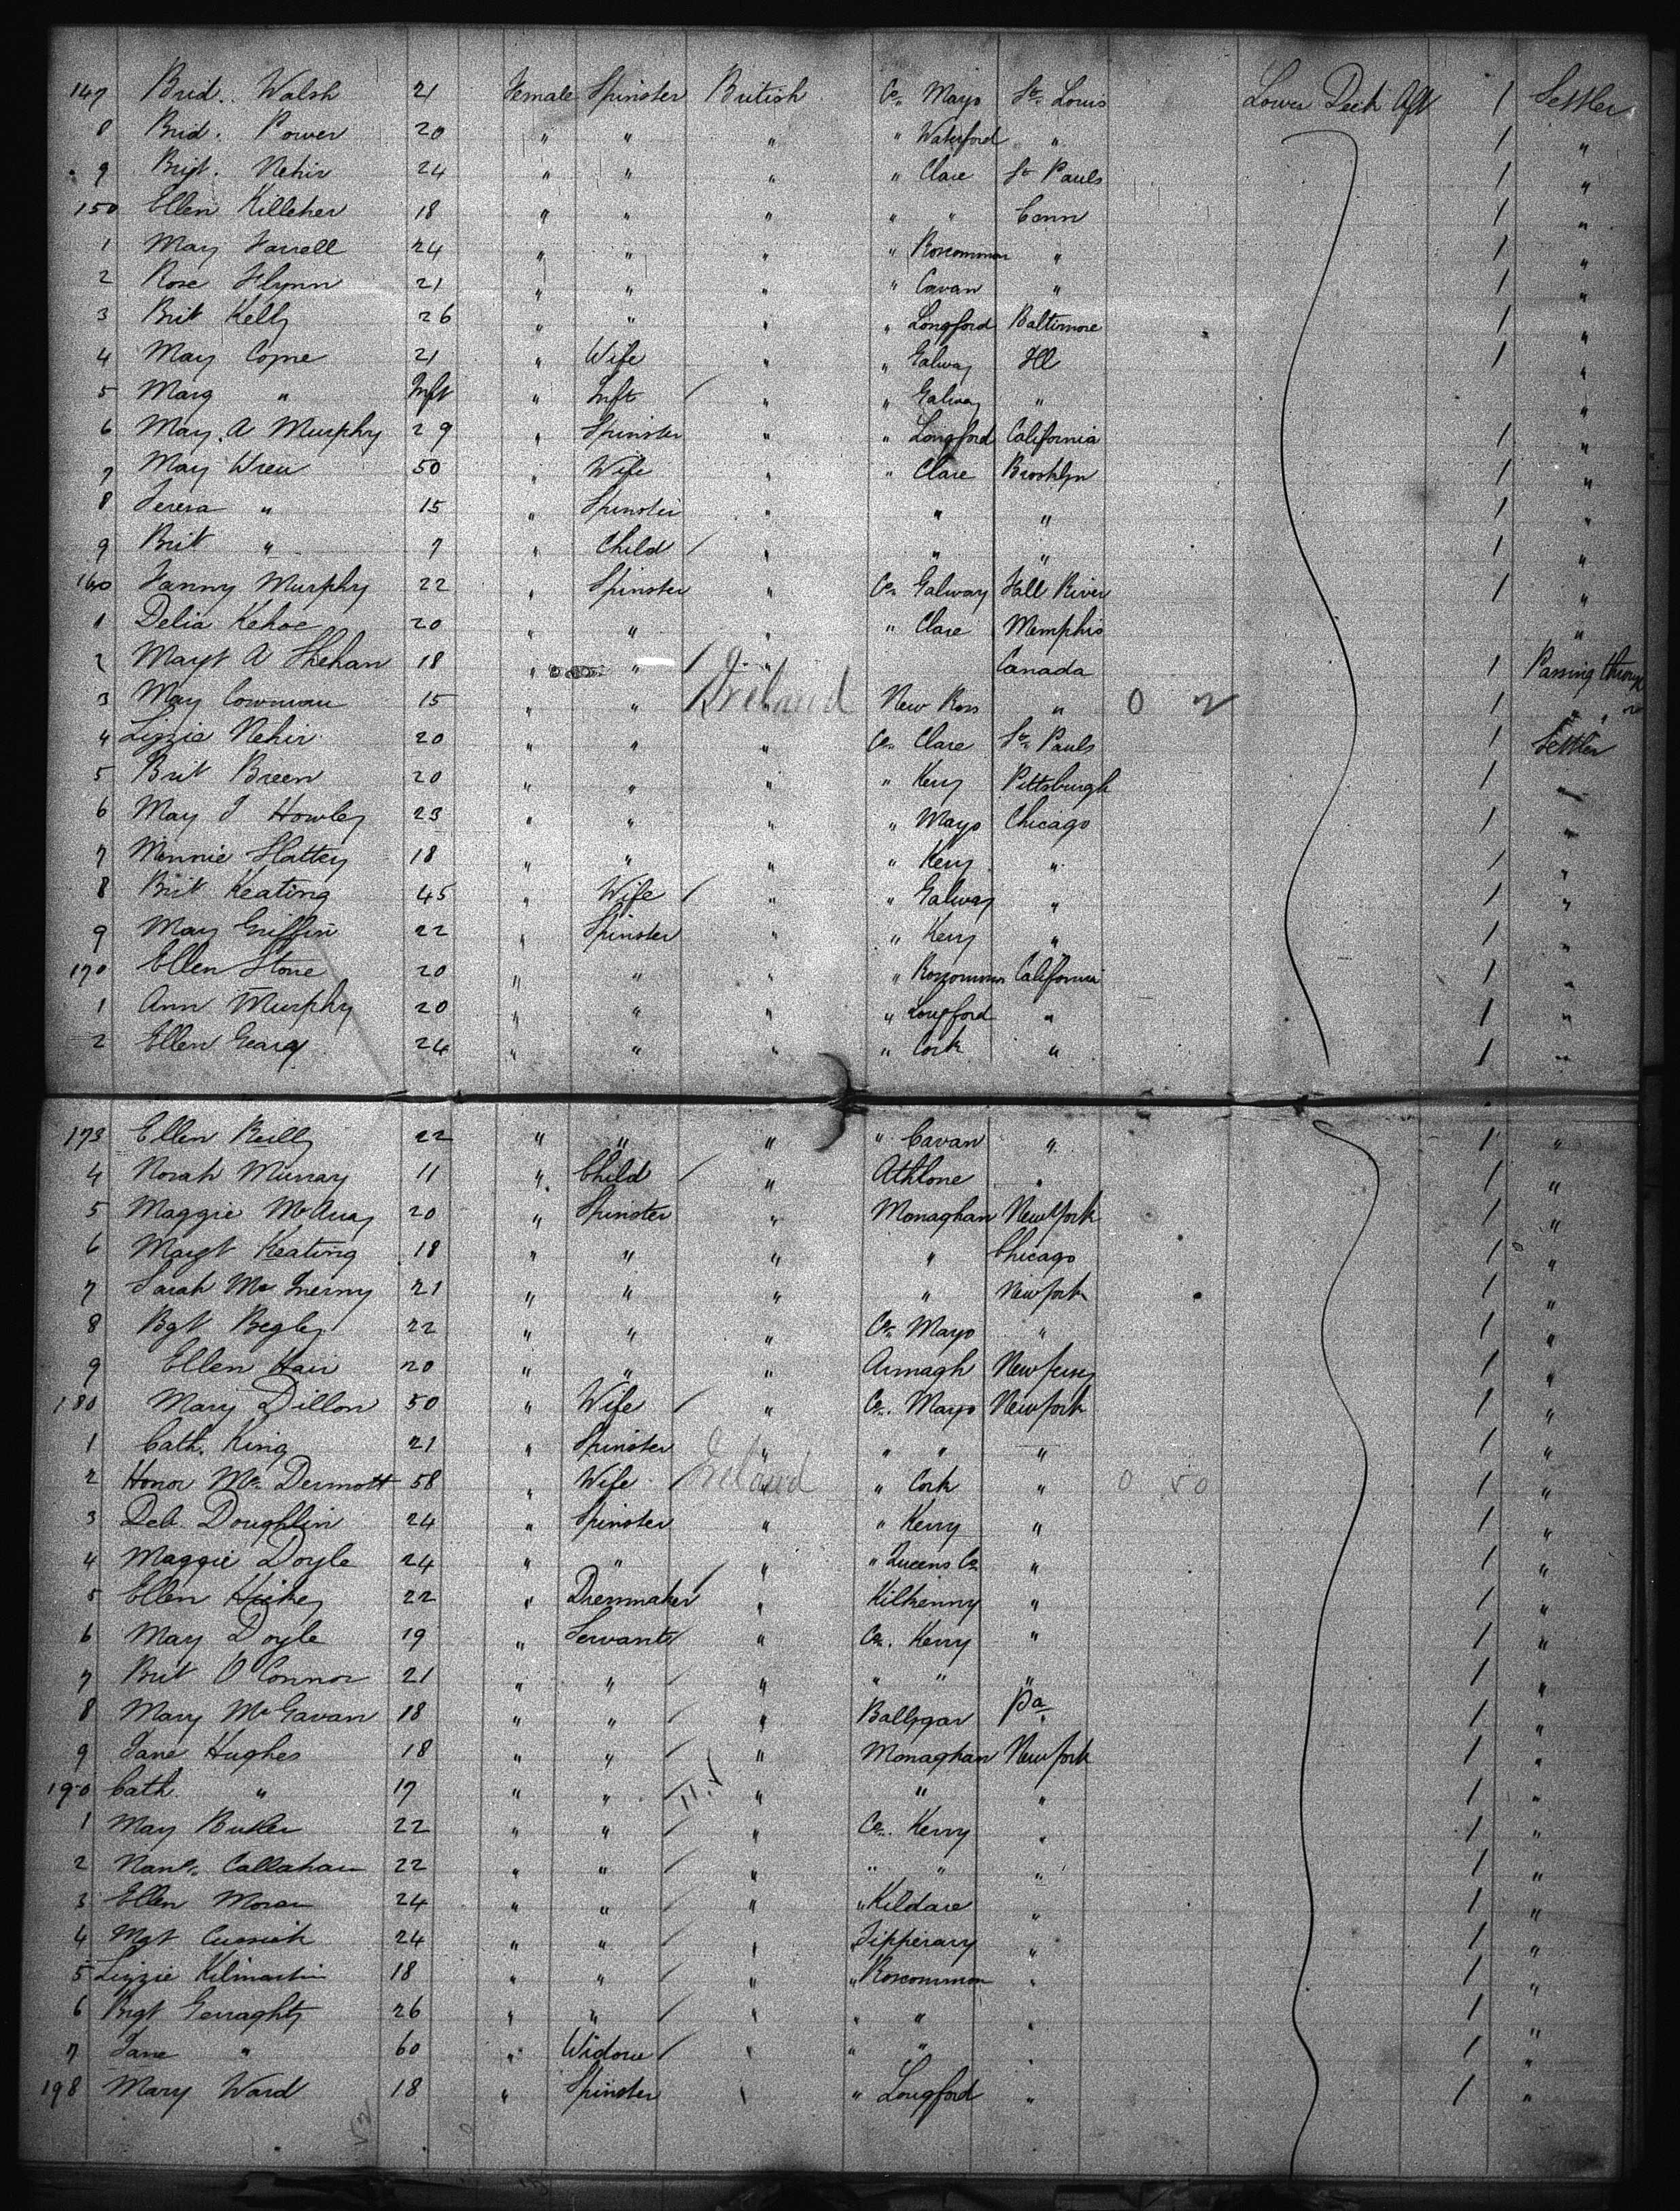 147 Brid. Walsh 21 Female Spinster British Co. Mayo St. Louis Lower Deck Aft 1 Settler
8 Brid. Power 20 " " " " Waterford " 1 "
9 Brigt. Nehir 24 " " " " Clare St Pauls 1 "
150 Ellen Killeher 18 " " " " " Conn 1 "
1 Mary Farrell 24 " " " " Roscommon " 1 "
2 Rose Flynn 21 " " " " Cavan " 1 "
3 Brit Kelly 26 " " " " Longford Baltimore 1 "
4 Mary Coyne 21 " Wife " " Galway Ill 1 "
5 Marg " Inft " Inft / " " Galway " "
6 Mary. A Murphy 29 " Spinster " " Longford California 1 "
7 Mary Wren 50 " Wife " " Clare Brooklyn 1 "
8 Teresa " 15 " Spinster " " " 1 "
9 Brit " 7 " Child / " " " 1 "
160 Fanny Murphy 22 " Spinster " Co. Galway Fall River 1 "
1 Delia Kehoe 20 " " " " Clare Memphis "
2 Mayt A Shehan 18 " " / " Canada 1 Passing through
3 May 15 " " Ireland " New Ross " 0 2 1 " "
4 Lizzie Nehir 20 " " " Co. Clare St. Pauls 1 Settler
5 Brit Breen 20 " " " " Kery Pittsburgh 1 "
6 May J Howley 23 " " " " Mayo Chicago 1 "
7 Minnie Slattey 18 " " " " Kery " 1 "
8 Brit Keating 45 " Wife / " " Galway " 1 "
9 May Griffin 22 " Spinster " " Kery " 1 "
170 Ellen Stone 20 " " " " Roscommon California 1 "
1 Ann Murphy 20 " " " " Longford " 1 "
2 Ellen Geary 24 " " " " Cork " 1 "
173 Ellen Reilly 22 " " " " Cavan " 1 "
4 Norah Murray 11 " Child / " Athlone " 1 "
5 Maggie 20 " Spinster " Monaghan New York 1 "
6 Margt Keating 18 " " " " Chicago 1 "
7 Sarah Mc Inerny 21 " " " " New York 1 "
8 Bgt Begley 22 " " " Co. Mayo " 1 "
9 Ellen Hair 20 " " " Armagh New Jersey 1 "
180 Mary Dillon 50 " Wife / " Co. Mayo New York 1 "
1 Cath. King 21 " Spinster " " " " 1 "
2 Honor Mc. Dermott 58 " Wife / Ireland " " Cork " 0 50 1 "
3 Deb. Doughlin 24 " Spinster " " Kerry " 1 "
4 Maggie Doyle 24 " " / " " Queens Co. " 1 "
5 Ellen Hickey 22 " Dressmaker " Kilkenny " 1 "
6 May Doyle 19 " Servant / " Co. Kerry " 1 "
7 Brit O'Connor 21 " " / " " " " 1 "
8 Mary McGavan 18 " " / " Ballygar Pa. 1 "
9 Jane Hughes 18 " " / " Monaghan New York 1 "
190 Cath " 17 " " / " " " 1 "
1 May Butler 22 " " / " Co. Kerry " 1 "
2 Callahan 22 " " / " " " " 1 "
3 Ellen Moran 24 " " / " " Kildare " 1 "
4 Mgt Cusick 24 " " / " Tipperary " 1 "
5 Lizzie Kilmartin 18 " " / " " Roscommon " 1 "
6 Brgt Gerraghty 26 " " / " " " " 1 "
7 Jane " 60 " Widow / " " " " 1 "
198 Mary Ward 18 " Spinster " " Longford " 1 "